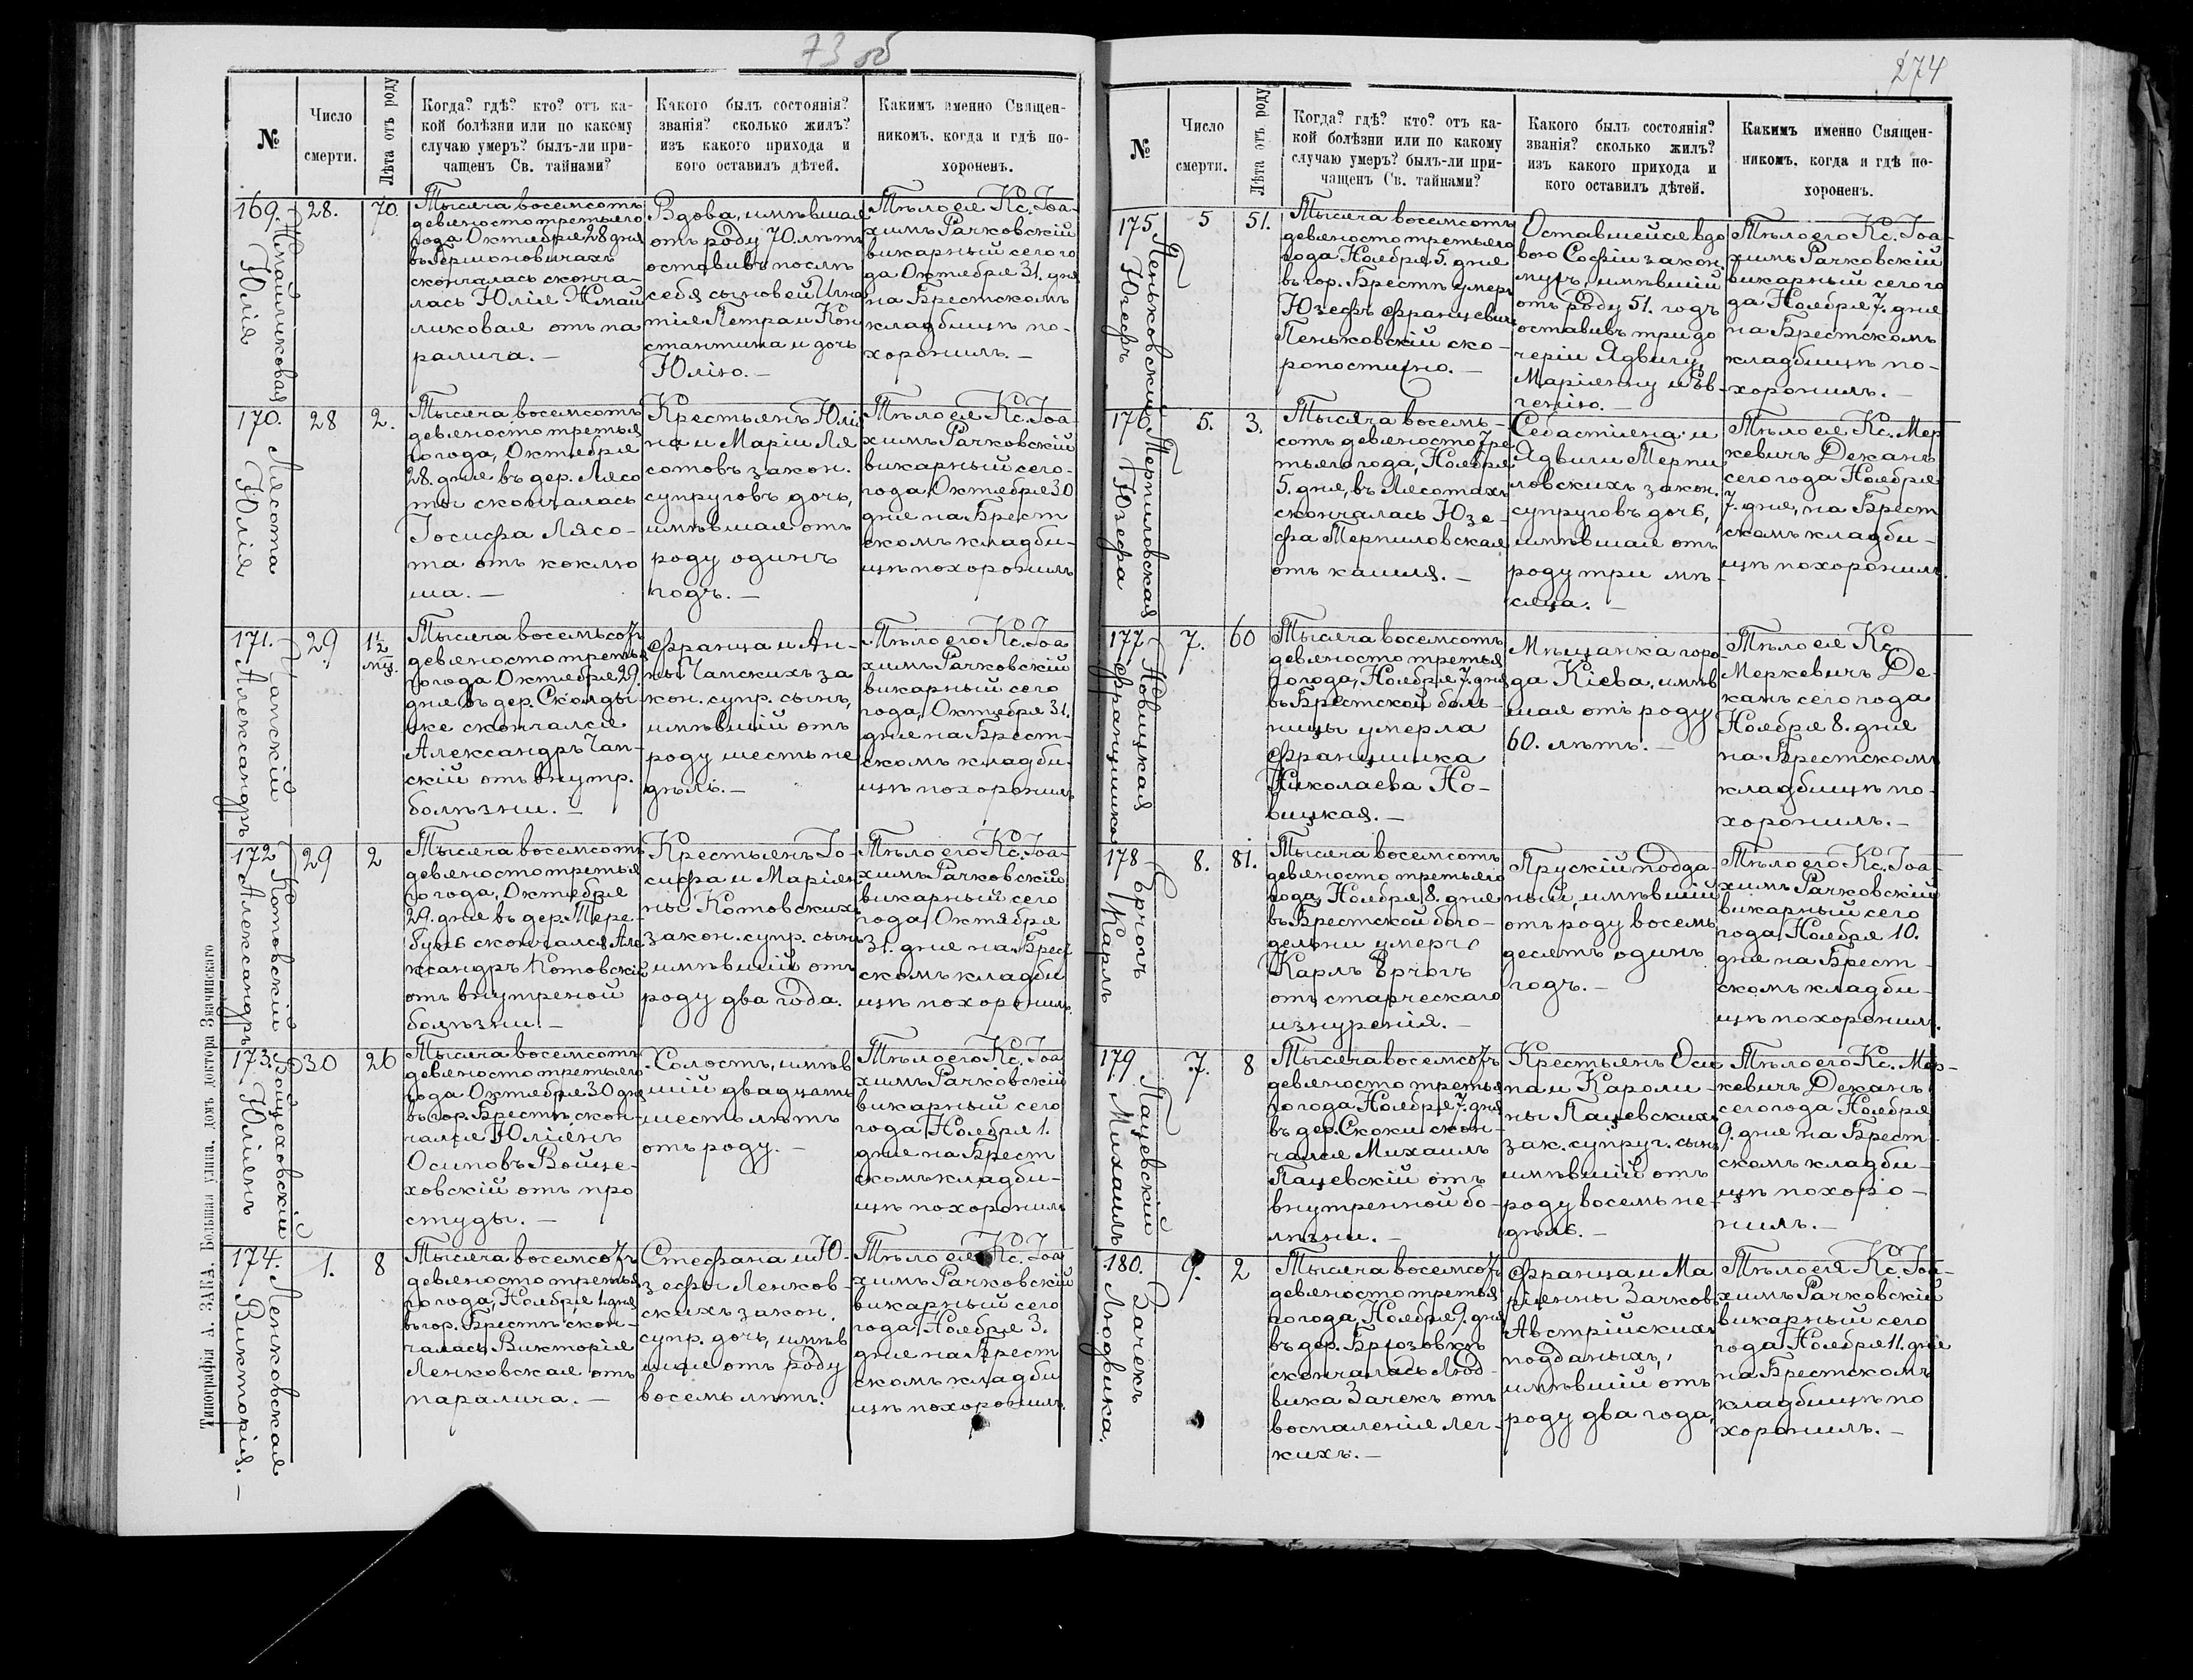 73 об
№
Число
смерти.
Лѣта отъ роду
Когда? гдѣ? кто? отъ ка-
кой болѣзни или по какому
случаю умеръ? былъ-ли при-
чащенъ Св. тайнами?
Какого былъ состоянія?
званія? сколько жилъ?
изъ какого прихода и
кого оставилъ дѣтей.
Какимъ именно Священ-
никомъ, когда и гдѣ по-
хороненъ.
169.
Юлія
28.
70.
Тысяча восемсотъ
девяносто третьяго
года Октября 28 дня
скончалась сконча-
лась Юлія Жмай
ликовая отъ па
ралича. —
Вдова, имѣвшая
отъ роду 70. лѣтъ
оставивъ послѣ
себя сыновей Игна
тія Петра и Кон
стантина и дочь
Юлію. —
Тѣло ея Кс. Іоа-
химъ Рачковскій
викарный сего го
да Октября 31. дня
на Брестскомъ
кладбищѣ по-
хоронилъ. —
170.
Лясота
Юлія
28
2.
Тысяча восемсотъ
девяносто третья
го года, Октября
28. дня въ дер. Лясо
ты скончалась
Іосифа Лясо-
та отъ коклю
ша. —
Крестьянъ Юлі
на и Маріи Ля
сотовъ закон.
супруговъ дочь,
имѣвшая отъ
роду одинъ
годъ. —
Тѣло ея Кс. Іоа-
химъ Рачковскій
викарный сего-
года, Октября 30
дня на Брест
скомъ кладби-
щѣ похоронилъ
171.
Чапскій
Александръ
29
1½
мѣс.
Тысяча восемьсотъ
девяносто третья
го года Октября 29.
дня въ дер. Сколды-
ке скончался
Александръ Чап-
скій отъ внутр.
болѣзни. —
Франца и Ан-
ны Чапскихъ за
кон. супр. сынъ,
имѣвшій отъ
роду шесть не
дѣль. —
Тѣло его Кс. Іоа
химъ Рачковскій
викарный сего
года, Октября 31.
дня на Брест-
скомъ кладби-
щѣ похоронилъ
172
Котовскій
Александръ
29
2
Тысяча восемсотъ
девяносто третья
го года, Октября
29. дня въ дер. Тере-
бунь скончался Але
ксандръ Котовскій
отъ внутреной
болѣзни. —
Крестьянъ Іо-
сифа и Маріян
ны Котовскихъ
закон. супр. сынъ
имѣвшій отъ
роду два года.
Тѣло его Кс. Іоа-
химъ Рачковскій
викарный сего
года, Октября
31. дня на Брест
скомъ кладби
щѣ похоронилъ
173.
Войцеховскій
Юліянъ
30
26
Тысяча восемсотъ
девяносто третьяго
года Октября 30 дня
въ гор. Брестѣ скон-
чался Юліянъ
Осиповъ Войце-
ховскій отъ про
студы. —
Холостъ, имѣв
шій двадцать
шесть лѣтъ
отъ роду. —
Тѣло его Кс. Іоа
химъ Рачковскій
викарный сего
года, Ноября 1.
дня на Брест
скомъ кладби-
щѣ похоронилъ
174.
Ленковская
Викторія. —
1.
8
Тысяча восемсотъ
девяносто третья
го года, Ноября 1. дня
въ гор. Брестѣ скон-
чалась Викторія
Ленковская отъ
паралича. —
Стефана и Ю-
зефы Ленков-
скихъ закон.
супр. дочь, имѣв
шая отъ роду
восемь лѣтъ.
Тѣло ея Кс. Іоа
химъ Рачковскій
викарный сего
года, Ноября 3.
дня на Брест
скомъ кладби
щѣ похоронилъ.
Типографія А. ЗАКА. Большая улица, домъ доктора Значинскаго
274
№
Число
смерти.
Лѣта отъ роду
Когда? гдѣ? кто? отъ ка-
кой болѣзни или по какому
случаю умеръ? былъ-ли при-
чащенъ Св. тайнами?
Какого былъ состоянія?
званія? сколько жилъ?
изъ какого прихода и
кого оставилъ дѣтей.
Какимъ именно Священ-
никомъ, когда и гдѣ по-
хороненъ.
175.
Пеньковскій
Юзефъ
5
51.
Тысяча восемсотъ
девяносто третьяго
года Ноября, 5. дня
въ гор. Брестѣ умеръ
Юзефъ Францевичъ
Пеньковскій ско-
ропостижно. —
Оставшейся вдо
вою Софіи закон.
мужъ, имѣвшій
отъ роду 51. годъ
оставивъ три до
черіи Ядвигу,
Маріянну и Ев-
генію. —
Тѣло его Кс. Іоа-
химъ Рачковскій
викарный сего го
да Ноября 7. дня
на Брестскомъ
кладбищѣ по-
хоронилъ. —
176.
Мерпиловская
Юзефа
5.
3.
Тысяча восемь-
сотъ девяносто тре
тьяго года, Ноября
5. дня, въ Лясотахъ
скончалась Юзе-
фа Мерпиловская
отъ кашля. —
Себастіяна и
Ядвиги Мерпи
ловскихъ закон.
супруговъ дочь,
имѣвшая отъ
роду три мѣ-
сяца. —
Тѣло ея Кс. Мер
кевичъ Деканъ
сего года Ноября
7. дня, на Брест
скомъ кладби-
щѣ похоронилъ.
177
Новицкая
Францишка
7.
60
Тысяча восемсотъ
девяносто третья
го года, Ноября 7. дня
въ Брестской боль-
ницы умерла
Францишка
Николаева Но-
вицкая. —
Мѣщанка горо-
да Кіева, имѣв
шая отъ роду
60. лѣтъ. —
Тѣло ея Кс.
Меркевичъ Де-
канъ сего года
Ноября 8. дня
на Брестскомъ
кладбищѣ по-
хоронилъ. —
178
Карлъ
8.
81.
Тысяча восемсотъ
девяносто третьяго
года, Ноября 8. дня
въ Брестской бого-
дельни умеръ
Карлъ
отъ старческаго
изнуренія. —
Прускій подда-
ный, имѣвшій
отъ роду восемь
десятъ одинъ
годъ. —
Тѣло его Кс. Іоа-
химъ Рачковскій
викарный сего
года, Ноября 10.
дня на Брест-
скомъ кладби-
щѣ похоронилъ.
179
Пацевскій
Михаилъ
7.
8
Тысяча восемсотъ
девяносто третья
го года Ноября 7. дня
въ дер. Скоки скон-
чался Михаилъ
Пацевскій отъ
внутренной бо-
лѣзни. —
Крестьянъ Оси
па и Кароли-
ны Пацевскихъ
зак. супруг. сынъ
имѣвшій отъ
роду восемь не-
дѣль. —
Тѣло его Кс. Мер-
кевичъ Деканъ
сего года Ноября
9. дня на Брест-
скомъ кладби-
щѣ похоро-
нилъ. —
180.
Зачекъ
Людвика.
9.
2
Тысяча восемсотъ
девяносто третья
го года, Ноября 9. дня
въ дер. Брюзовкѣ
скончалась Люд-
вика Зачекъ отъ
воспаленія лег-
кихъ. —
Франца и Ма
ріянны Зачковъ
Австрійскихъ
подданыхъ,
имѣвшій отъ
роду два года,
Тѣло ея Кс. Іоа-
химъ Рачковскій
викарный сего
года Ноября 11. дня
на Брестскомъ
кладбищѣ по
хоронилъ. —